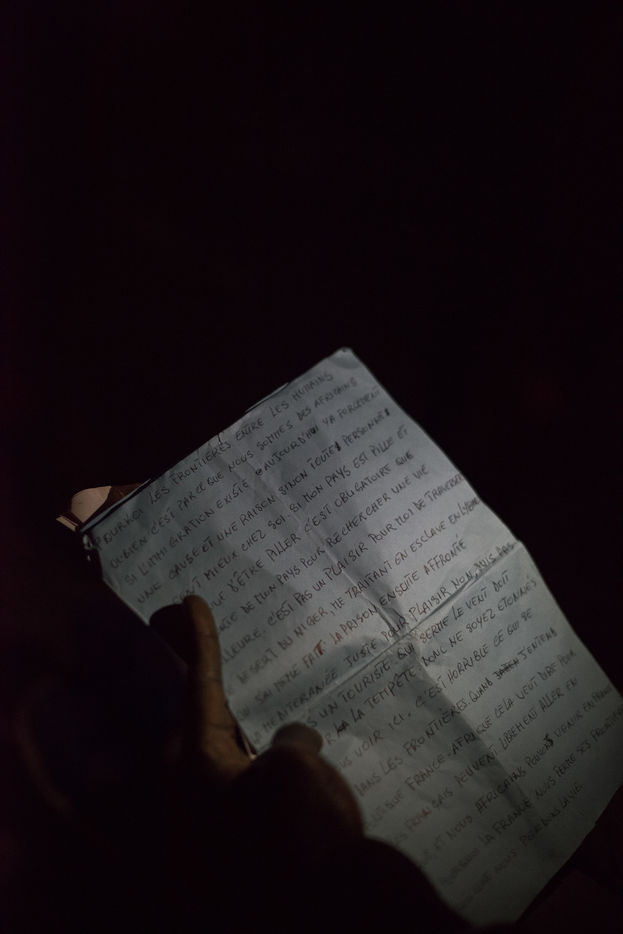 POURKOI LES FRONTIÈRES ENTRE LES HUMAINS
OUBIEN C'EST PARCE QUE NOUS SOMMES DES AFRICAINS
SI L'IMMIGRATION EXISTE AUJOURD'HUI YA FORCEMENT
UNE CAUSE ET UNE RAISON SINON TOUTES PERSONNES
EST MIEUX CHEZ SOI. SI MON PAYS EST PILLE ET
QUE D'ÊTRE PILLER C'EST OBLIGATOIRE QUE
DE MON PAYS POUR RECHERCHER UNE VIE
MEILLEURE. C'EST PAS UN PLAISIR POUR MOI DE TRAVERSER
LE DESERT DU NIGER, ME TRAITANT EN ESCLAVE EN LYBIE
FAIT LA PRISON ENSUITE AFFRONTÉ
LA MEDITERANÉE JUSTE POUR PLAISIR NON, SUIS PAS
UN TOURISTE. QUI SEME LE VENT DOIT
LA TEMPÊTE DONC NE SOYEZ ETONNÉS
VOIR ICI. C'EST HORRIBLE CE QUI SE
DANS LES FRONTIÈRES. QUAND J'ENTEND
QUE FRANCE-AFRIQUE CELA VEUT DIRE POUR
LES FRANÇAIS PEUVENT LIBEMENT ALLER EN
ET NOUS AFRICAINS POUVONS VENIR EN FRANCE
LA FRANCE NOUS FERME SES FRONTIÈRES
QUE NOUS POUR DANS LA VIE